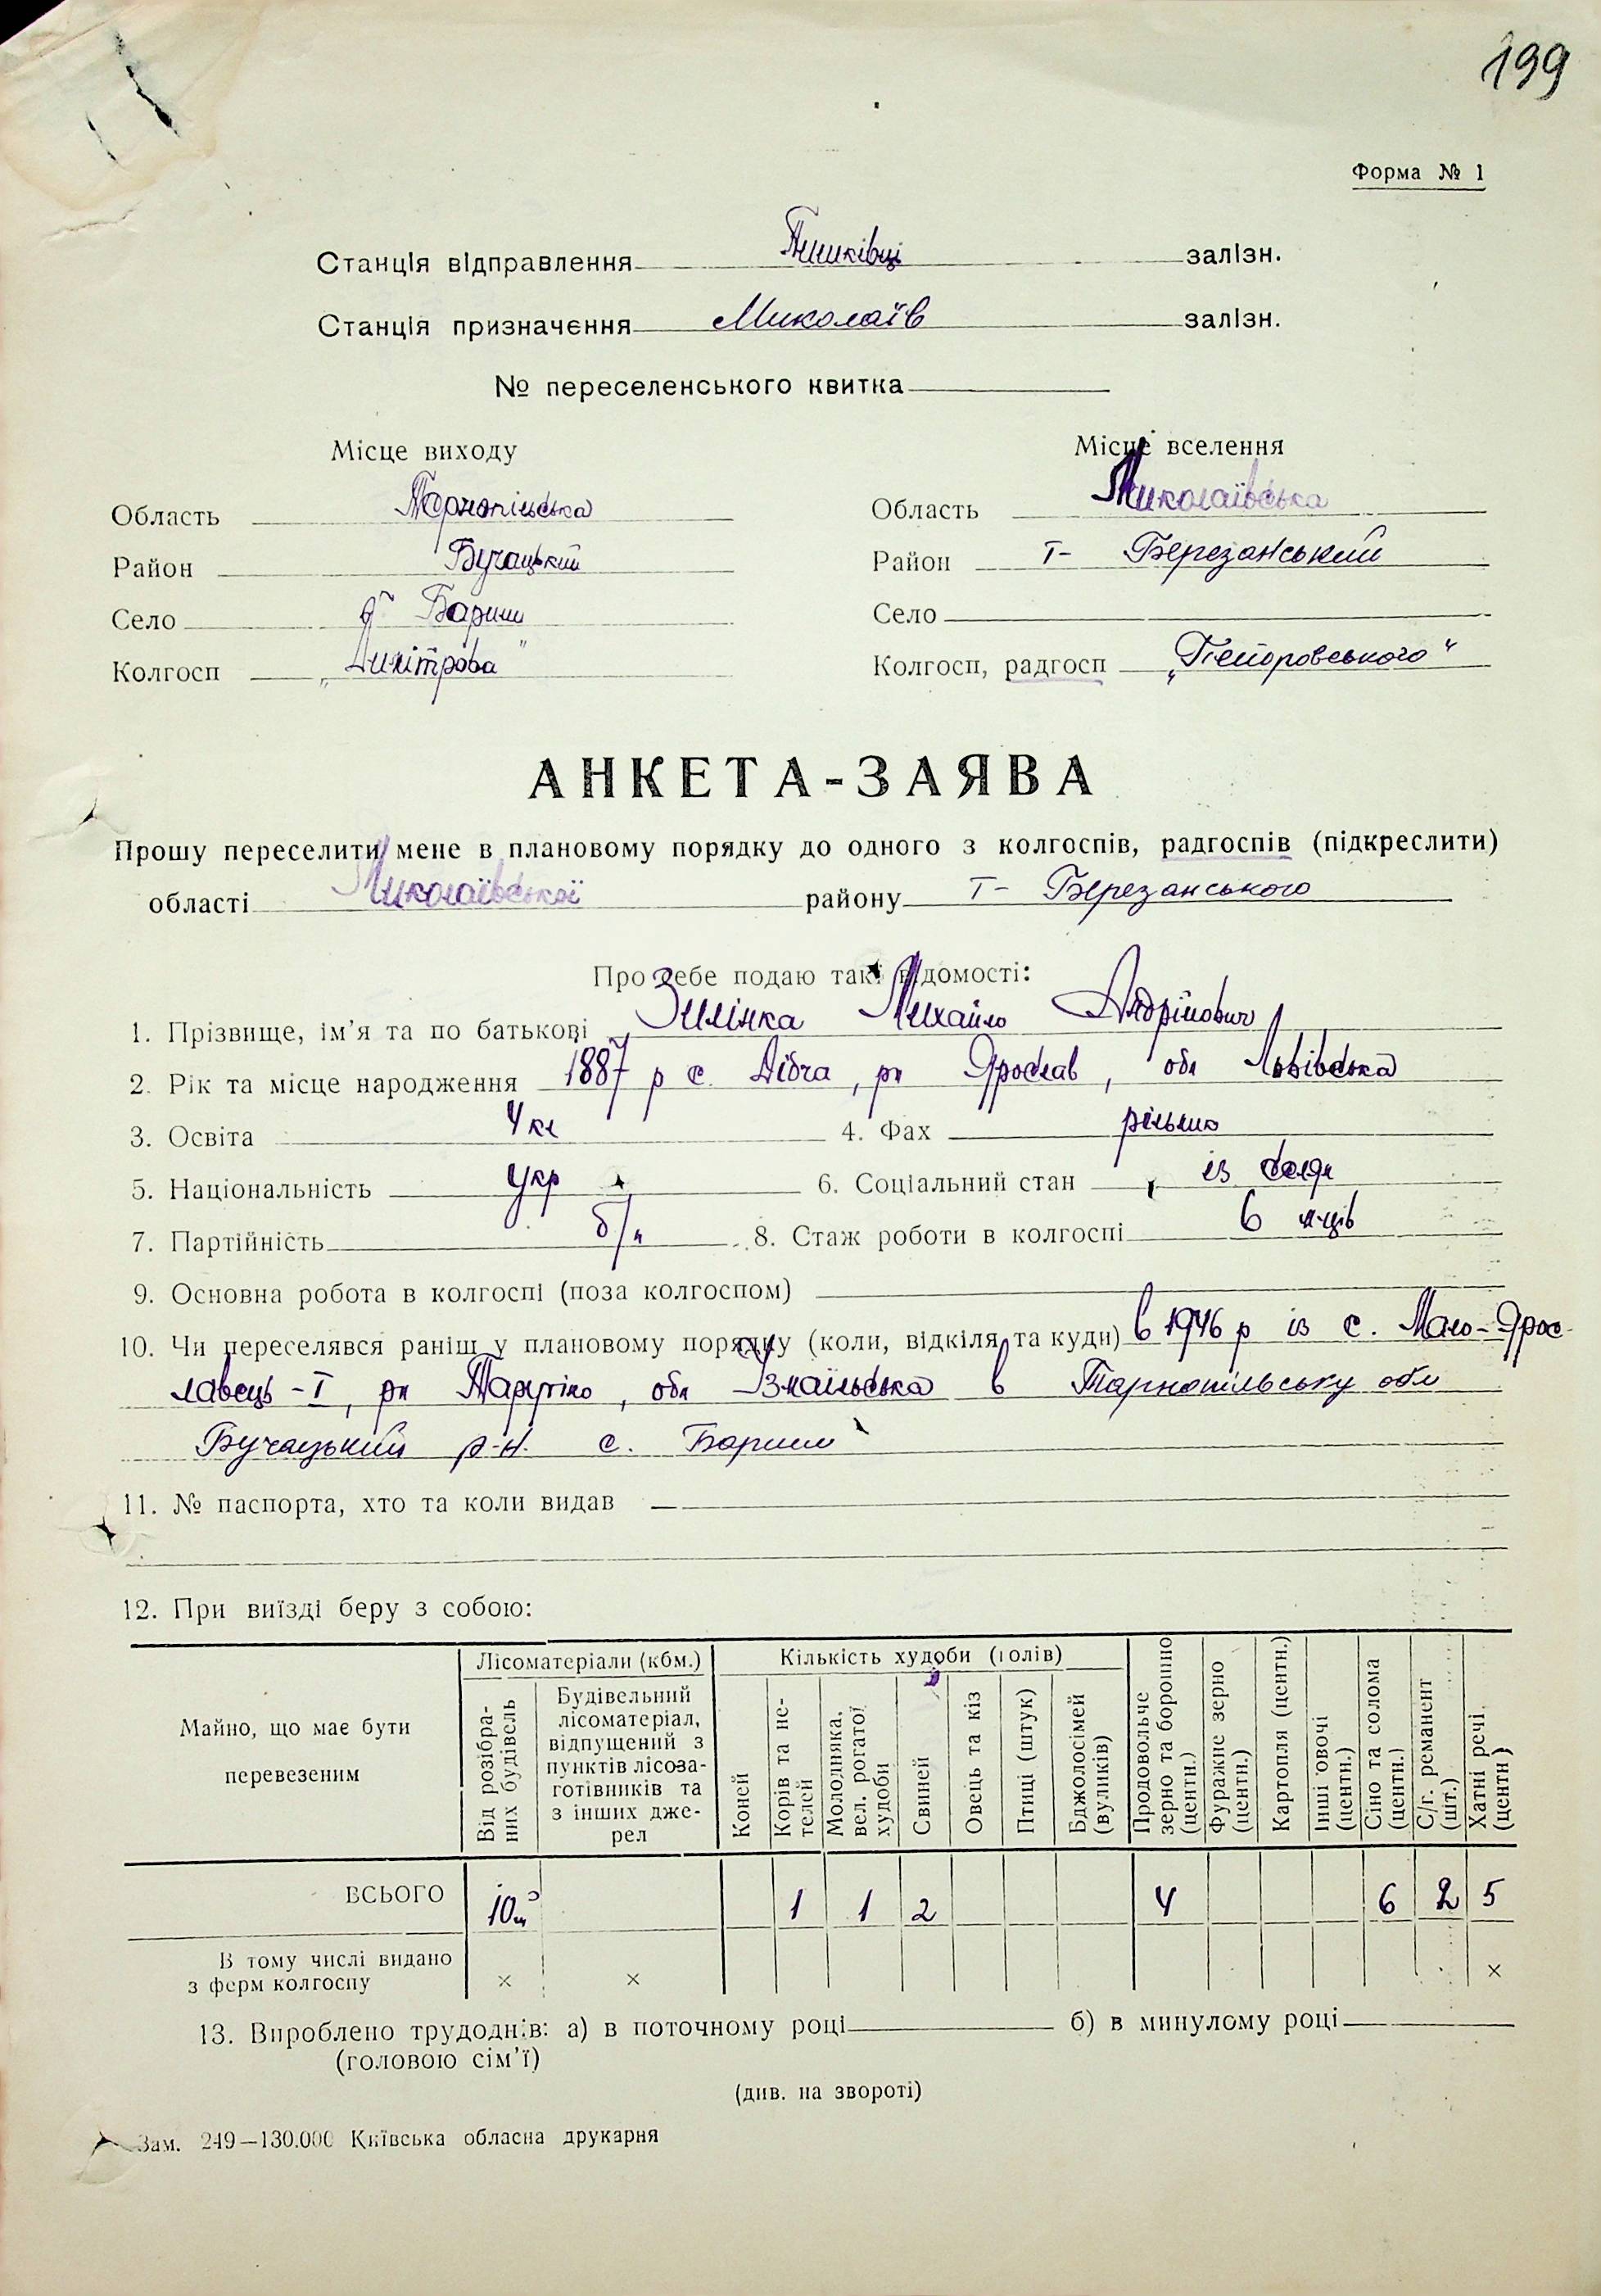 199
Форма № 1
Станція відправлення Пишківці залізн.
Станція призначення Миколаїв залізн.
№ переселенського квитка
Місце виходу
Місце вселення
Область Тернопільська
Область Миколаївська
Район Бучацький
Район Т- Березанський
Село с Бариш
Село
Колгосп „Димітрова"
Колгосп, радгосп
АНКЕТА-ЗАЯВА
Прошу переселити мене в плановому порядку до одного з колгоспів, радгоспів (підкреслити)
області Миколаївської району Т- Березанського
Про себе подаю такі відомості:
1. Прізвище, ім'я та по батькові Зилінка Михайло Андрійович
2. Рік та місце народження 1887 р с. Дібча, рн Ярослав, обл Львівська
3. Освіта 4 кл 4. Фах рільник
5. Національність укр 6. Соціальний стан із селян
7. Партійність б/п 8. Стаж роботи в колгоспі 6 м-ців
9. Основна робота в колгоспі (поза колгоспом)
10. Чи переселявся раніш у плановому порядку (коли, відкіля та куди) в 1946 р із с. Мало-Ярос-
лавець-I, рн Тарутіно, обл Ізмаїльська в Тарнопільську обл
Бучацький р-н. с. Бариш
11. № паспорта, хто та коли видав —
12. При виїзді беру з собою:
Майно, що має бути перевезеним
Лісоматеріали (кбм.)
Кількість худоби (голів)
Від розібраних будівель
Будівельний лісоматеріал, відпущений з пунктів лісозаготівників та з інших джерел
Коней
Корів та нетелей
Молодняка, вел. рогатої худоби
Свиней
Овець та кіз
Птиці (штук)
Бджолосімей (вуликів)
Продовольче зерно та борошно (центн.)
Фуражне зерно (центн.)
Картопля (центн.)
Інші овочі (центн.)
Сіно та солома (центн.)
С/г. реманент (шт.)
Хатні речі (центн)
ВСЬОГО 10м³ 1 1 2 4 6 2 5
В тому числі видано з ферм колгоспу × × ×
13. Вироблено трудоднів: а) в поточному році б) в минулому році
(головою сім'ї)
(див. на звороті)
Зам. 249—130.000 Київська обласна друкарня